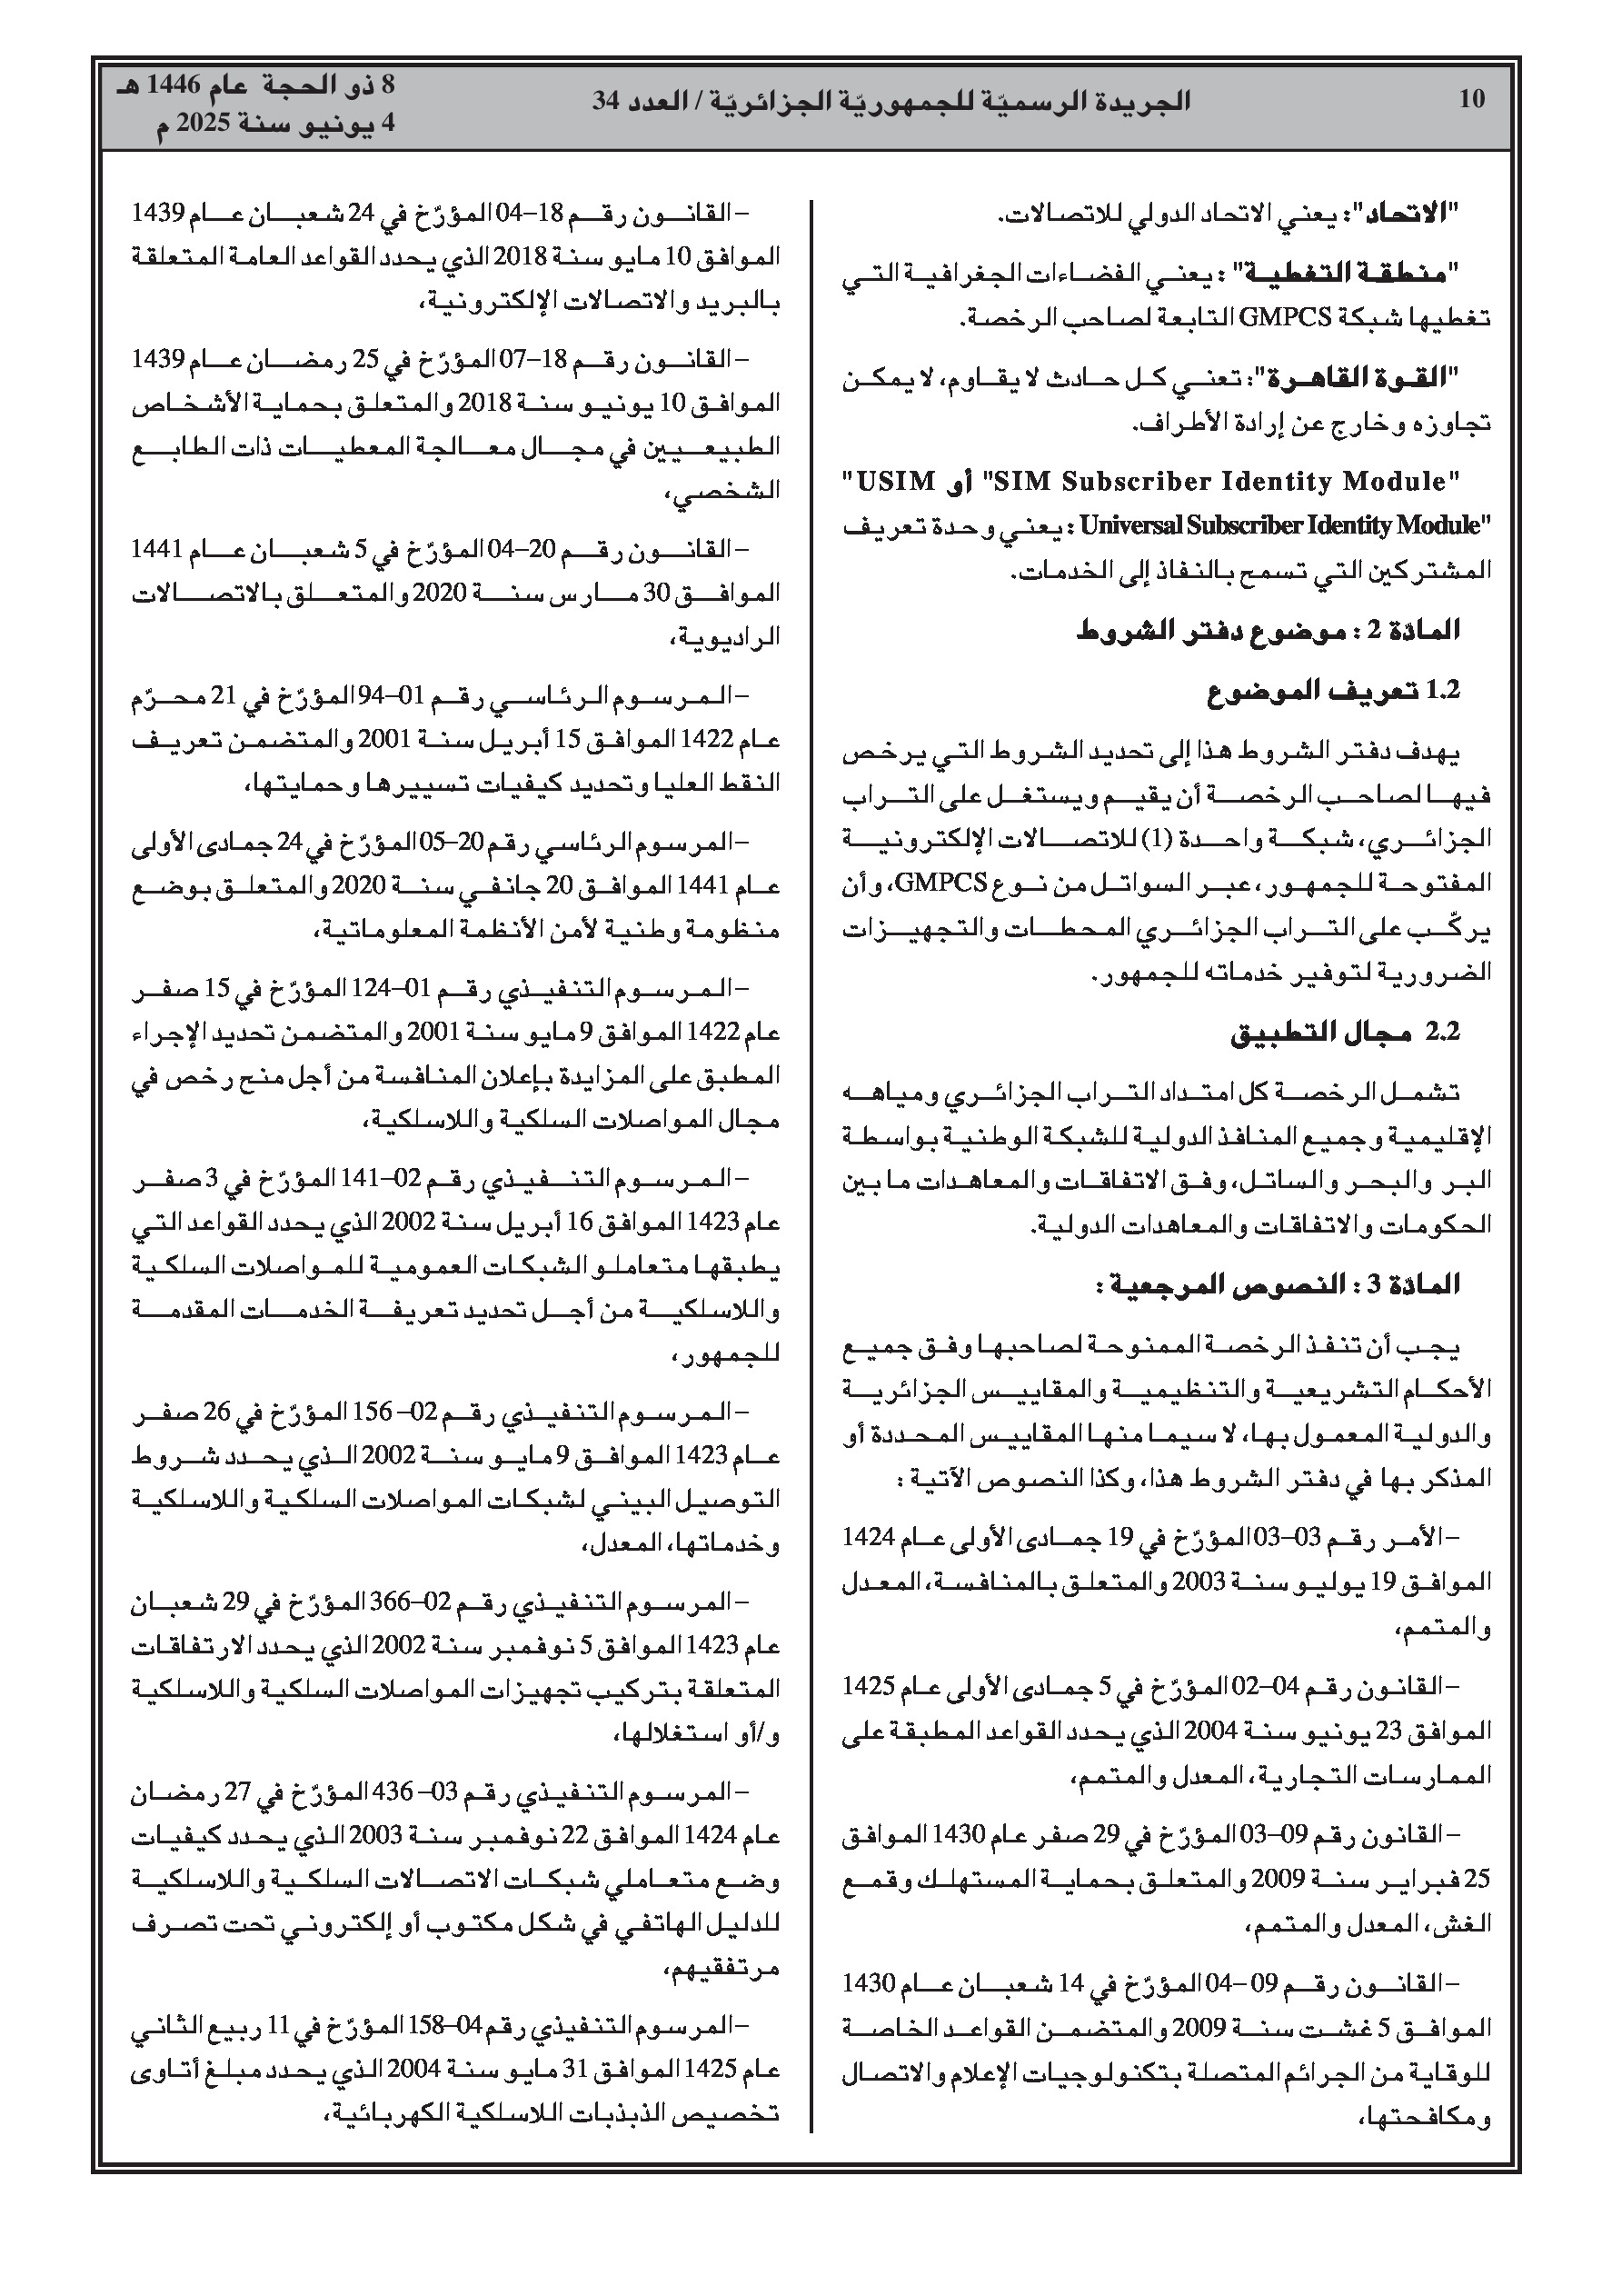 10
الجريدة الرسميّة للجمهوريّة الجزائريّة / العدد 34
8 ذو الحجة عام 1446 هـ
4 يونيو سنة 2025 م
"الاتحاد": يعني الاتحاد الدولي للاتصالات.
"منطقة التغطية" : يعني الفضاءات الجغرافية التي
تغطيها شبكة GMPCS التابعة لصاحب الرخصة.
"القوة القاهرة": تعني كل حادث لا يقاوم، لا يمكن
تجاوزه وخارج عن إرادة الأطراف.
"SIM Subscriber Identity Module" أو USIM"
Universal Subscriber Identity Module" : يعني وحدة تعريف
المشتركين التي تسمح بالنفاذ إلى الخدمات.
المادّة 2 : موضوع دفتر الشروط
1.2 تعريف الموضوع
يهدف دفتر الشروط هذا إلى تحديد الشروط التي يرخص
فيها لصاحب الرخصة أن يقيم ويستغل على التراب
الجزائري، شبكة واحدة (1) للاتصالات الإلكترونية
المفتوحة للجمهور، عبر السواتل من نوع GMPCS، وأن
يركّب على التراب الجزائري المحطات والتجهيزات
الضرورية لتوفير خدماته للجمهور.
2.2 مجال التطبيق
تشمل الرخصة كل امتداد التراب الجزائري ومياهه
الإقليمية وجميع المنافذ الدولية للشبكة الوطنية بواسطة
البر والبحر والساتل، وفق الاتفاقات والمعاهدات ما بين
الحكومات والاتفاقات والمعاهدات الدولية.
المادّة 3 : النصوص المرجعية :
يجب أن تنفذ الرخصة الممنوحة لصاحبها وفق جميع
الأحكام التشريعية والتنظيمية والمقاييس الجزائرية
والدولية المعمول بها، لا سيما منها المقاييس المحددة أو
المذكر بها في دفتر الشروط هذا، وكذا النصوص الآتية :
– الأمر رقم 03–03 المؤرّخ في 19 جمادى الأولى عام 1424
الموافق 19 يوليو سنة 2003 والمتعلق بالمنافسة، المعدل
والمتمم،
– القانون رقم 04–02 المؤرّخ في 5 جمادى الأولى عام 1425
الموافق 23 يونيو سنة 2004 الذي يحدد القواعد المطبقة على
الممارسات التجارية، المعدل والمتمم،
– القانون رقم 09–03 المؤرّخ في 29 صفر عام 1430 الموافق
25 فبراير سنة 2009 والمتعلق بحماية المستهلك وقمع
الغش، المعدل والمتمم،
– القانون رقم 09 –04 المؤرّخ في 14 شعبان عام 1430
الموافق 5 غشت سنة 2009 والمتضمن القواعد الخاصة
للوقاية من الجرائم المتصلة بتكنولوجيات الإعلام والاتصال
ومكافحتها،
– القانون رقم 18–04 المؤرّخ في 24 شعبان عام 1439
الموافق 10 مايو سنة 2018 الذي يحدد القواعد العامة المتعلقة
بالبريد والاتصالات الإلكترونية،
– القانون رقم 18–07 المؤرّخ في 25 رمضان عام 1439
الموافق 10 يونيو سنة 2018 والمتعلق بحماية الأشخاص
الطبيعيين في مجال معالجة المعطيات ذات الطابع
الشخصي،
– القانون رقم 20–04 المؤرّخ في 5 شعبان عام 1441
الموافق 30 مارس سنة 2020 والمتعلق بالاتصالات
الراديوية،
– المرسوم الرئاسي رقم 01–94 المؤرّخ في 21 محرّم
عام 1422 الموافق 15 أبريل سنة 2001 والمتضمن تعريف
النقط العليا وتحديد كيفيات تسييرها وحمايتها،
– المرسوم الرئاسي رقم 20–05 المؤرّخ في 24 جمادى الأولى
عام 1441 الموافق 20 جانفي سنة 2020 والمتعلق بوضع
منظومة وطنية لأمن الأنظمة المعلوماتية،
– المرسوم التنفيذي رقم 01–124 المؤرّخ في 15 صفر
عام 1422 الموافق 9 مايو سنة 2001 والمتضمن تحديد الإجراء
المطبق على المزايدة بإعلان المنافسة من أجل منح رخص في
مجال المواصلات السلكية واللاسلكية،
– المرسوم التنفيذي رقم 02–141 المؤرّخ في 3 صفر
عام 1423 الموافق 16 أبريل سنة 2002 الذي يحدد القواعد التي
يطبقها متعاملو الشبكات العمومية للمواصلات السلكية
واللاسلكية من أجل تحديد تعريفة الخدمات المقدمة
للجمهور،
– المرسوم التنفيذي رقم 02– 156 المؤرّخ في 26 صفر
عام 1423 الموافق 9 مايو سنة 2002 الذي يحدد شروط
التوصيل البيني لشبكات المواصلات السلكية واللاسلكية
وخدماتها، المعدل،
– المرسوم التنفيذي رقم 02–366 المؤرّخ في 29 شعبان
عام 1423 الموافق 5 نوفمبر سنة 2002 الذي يحدد الارتفاقات
المتعلقة بتركيب تجهيزات المواصلات السلكية واللاسلكية
و/أو استغلالها،
– المرسوم التنفيذي رقم 03– 436 المؤرّخ في 27 رمضان
عام 1424 الموافق 22 نوفمبر سنة 2003 الذي يحدد كيفيات
وضع متعاملي شبكات الاتصالات السلكية واللاسلكية
للدليل الهاتفي في شكل مكتوب أو إلكتروني تحت تصرف
مرتفقيهم،
– المرسوم التنفيذي رقم 04–158 المؤرّخ في 11 ربيع الثاني
عام 1425 الموافق 31 مايو سنة 2004 الذي يحدد مبلغ أتاوى
تخصيص الذبذبات اللاسلكية الكهربائية،